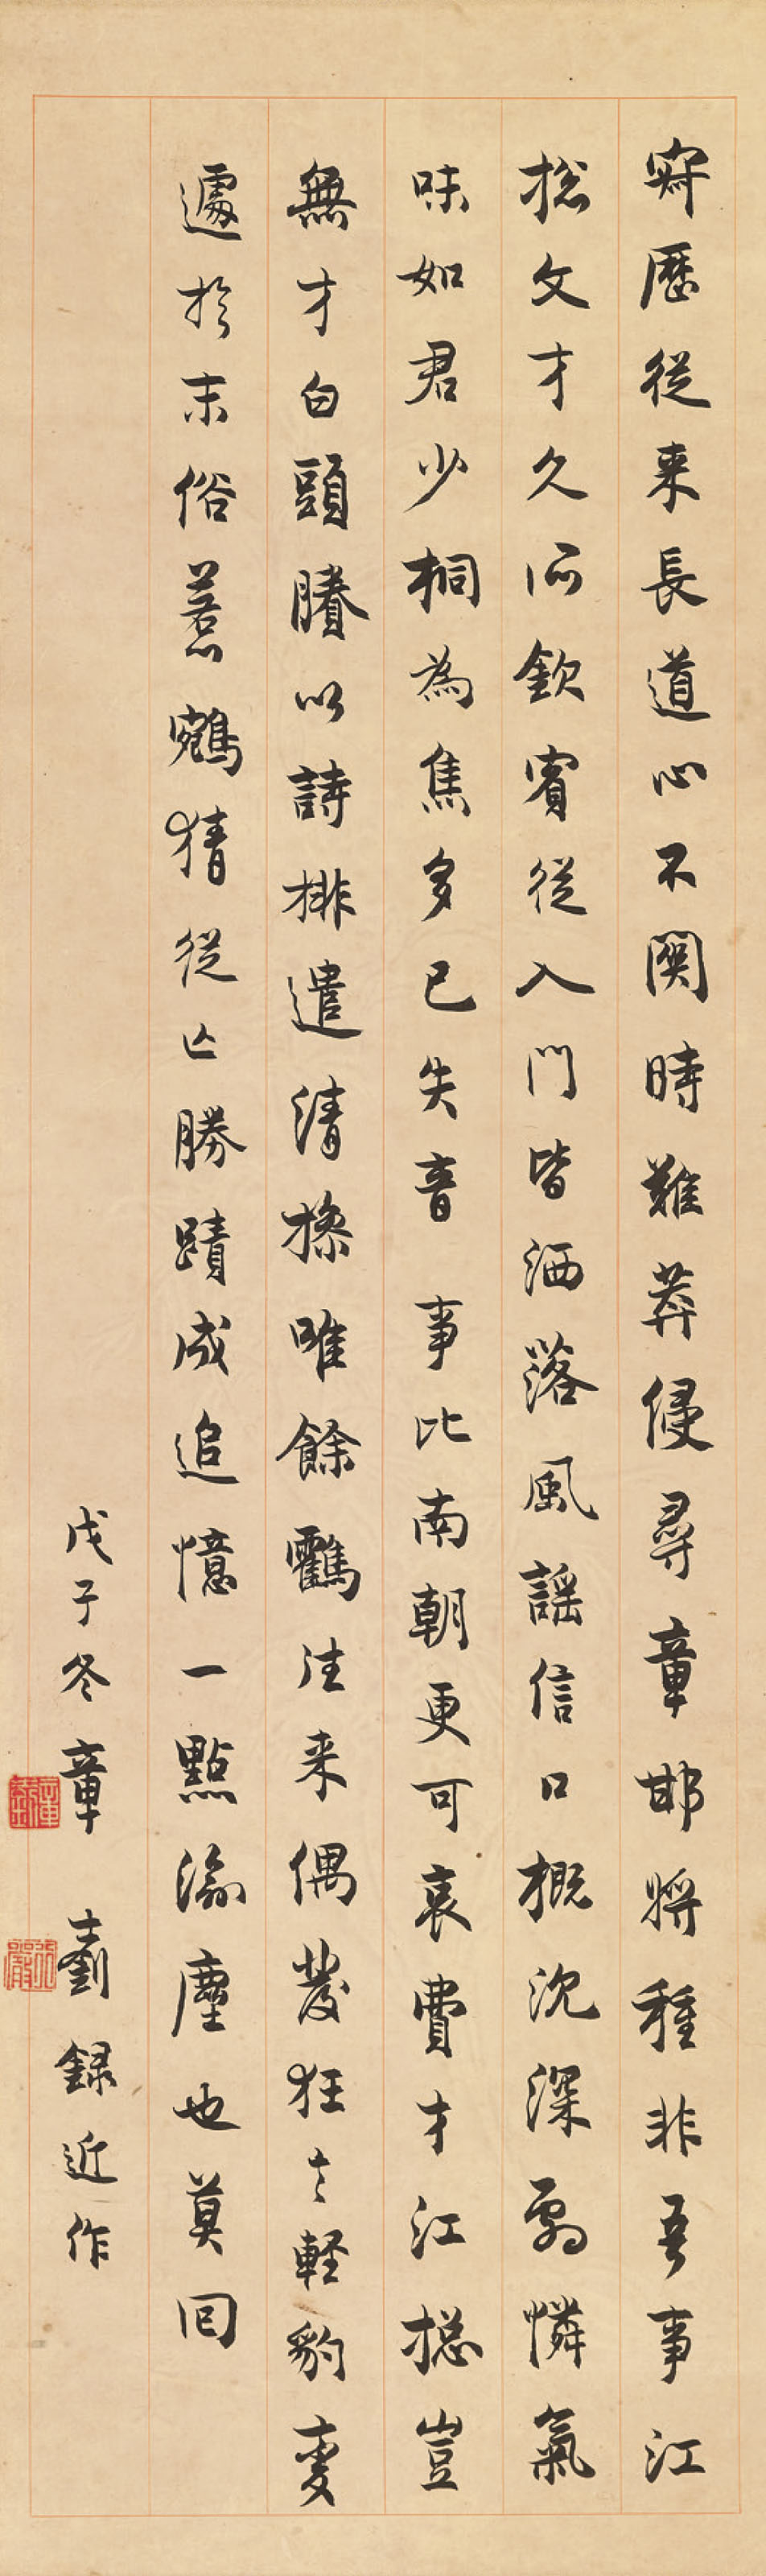 寂歷從来長道心不関時難莽侵尋章邯將種非吾事江
摠文才久所欽賓從入門皆洒落風謡信口概沈深劇憐氣
味如君少桐為焦多已失音 事比南朝更可哀費才江摠豈
無才白頭賸以詩排遣清操唯餘鶴往来偶發狂言輕豹變
遽於末俗惹鵷猜從亡勝蹟成追憶一點淪塵也莫囘
戊子冬章士釗録近作